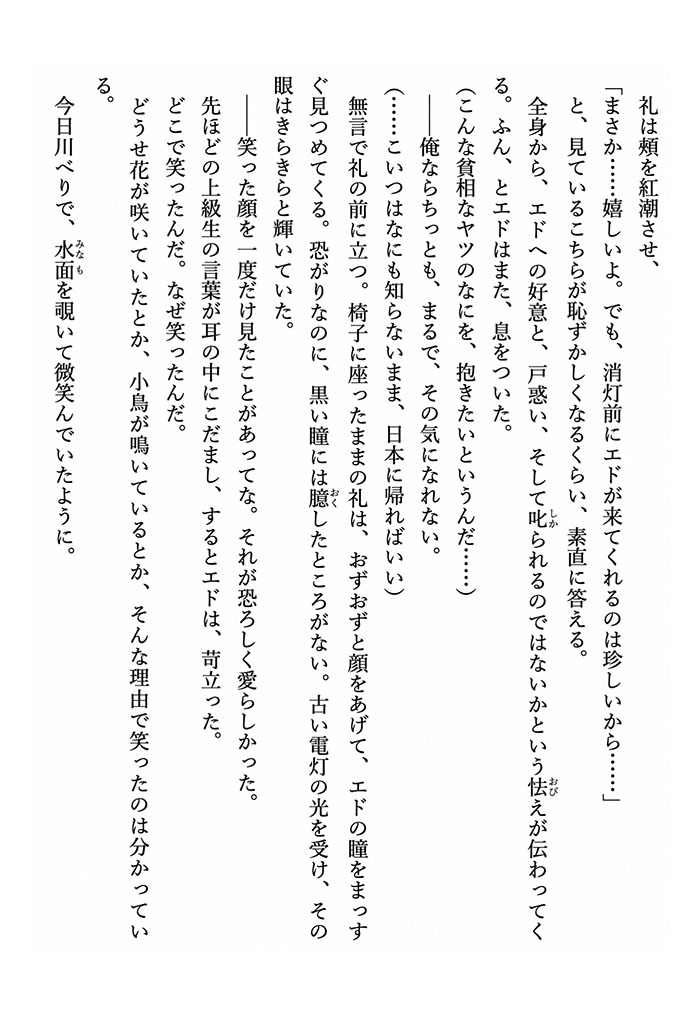 礼は頰を紅潮させ、
「まさか……嬉しいよ。でも、消灯前にエドが来てくれるのは珍しいから……」
と、見ているこちらが恥ずかしくなるくらい、素直に答える。
全身から、エドへの好意と、戸惑い、そして叱られるのではないかという怯えが伝わってく
る。ふん、とエドはまた、息をついた。
(こんな貧相なヤツのなにを、抱きたいというんだ……)
――俺ならちっとも、まるで、その気になれない。
(……こいつはなにも知らないまま、日本に帰ればいい)
無言で礼の前に立つ。椅子に座ったままの礼は、おずおずと顔をあげて、エドの瞳をまっす
ぐ見つめてくる。恐がりなのに、黒い瞳には臆したところがない。古い電灯の光を受け、その
眼はきらきらと輝いていた。
――笑った顔を一度だけ見たことがあってな。それが恐ろしく愛らしかった。
先ほどの上級生の言葉が耳の中にこだまし、するとエドは、苛立った。
どこで笑ったんだ。なぜ笑ったんだ。
どうせ花が咲いていたとか、小鳥が鳴いているとか、そんな理由で笑ったのは分かってい
る。
今日川べりで、水面を覗いて微笑んでいたように。